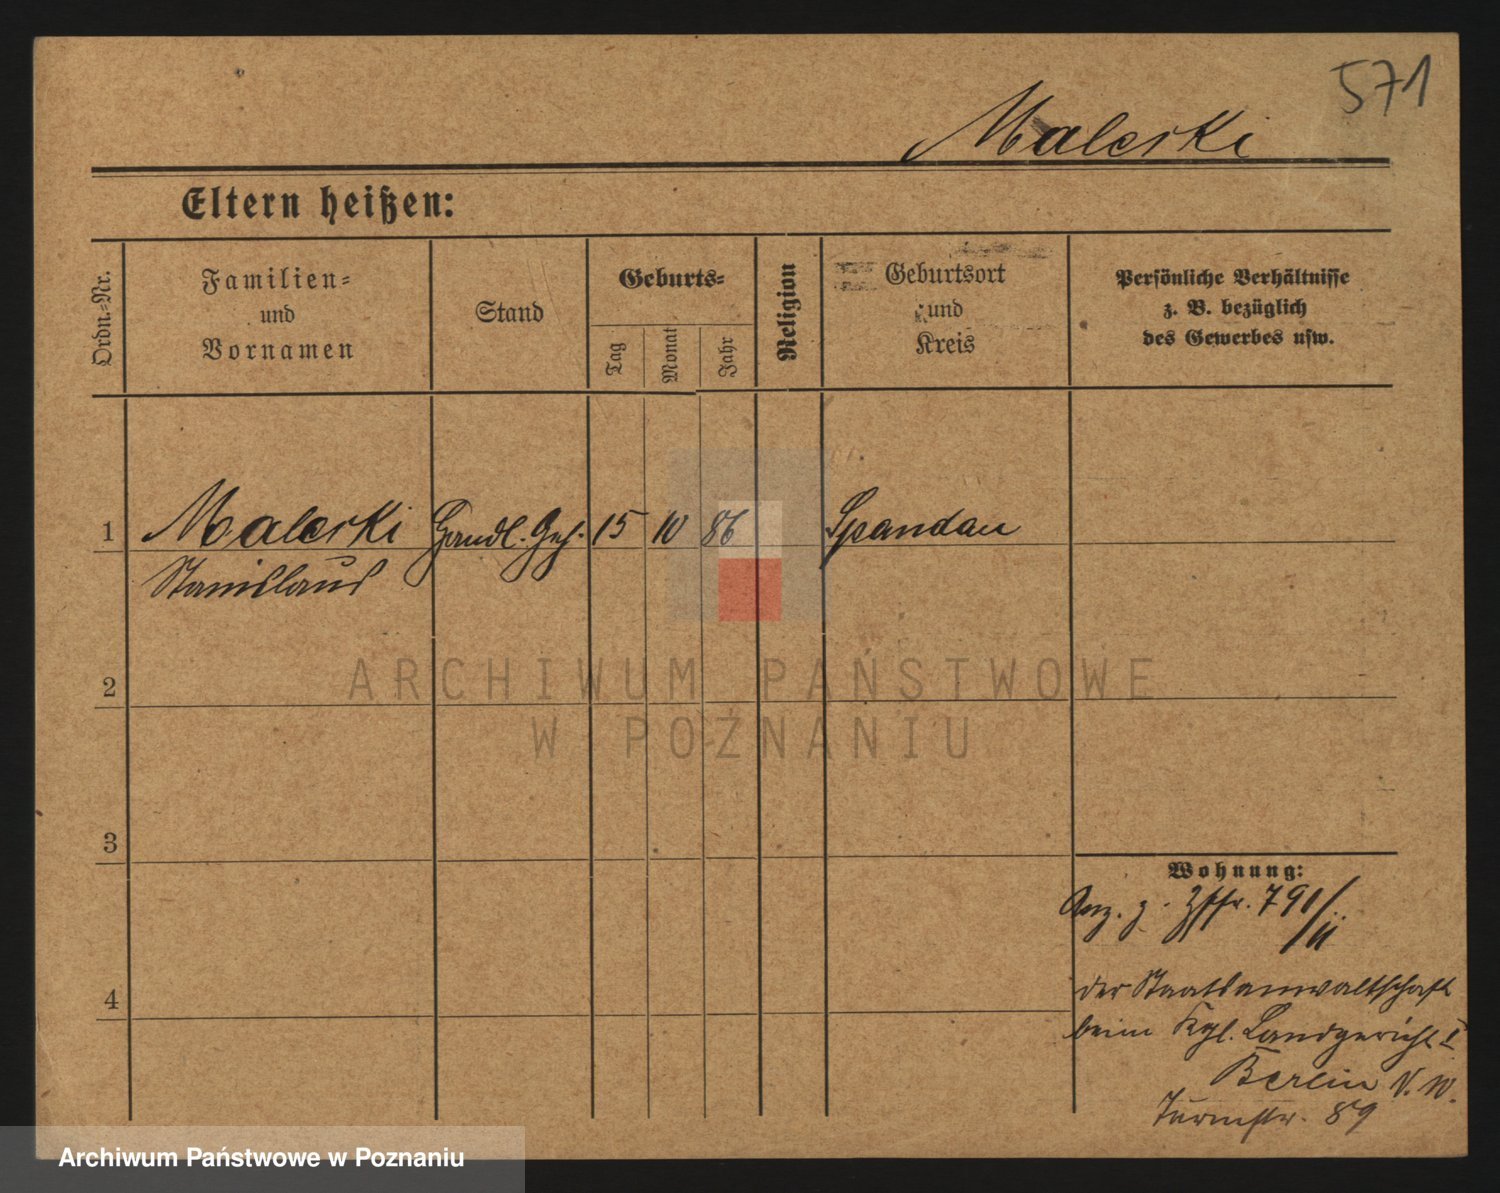 571
Maleski
Eltern heißen:
Ordn.-Nr.
Familien-
und
Vornamen
Stand
Geburts-
Tag
Monat
Jahr
Religion
Geburtsort
und
Kreis
Persönliche Verhältnisse
z. B. bezüglich
des Gewerbes usw.
1
Maleski
Handl. Geh.
15
10
86
Spandau
Stanislaus
2
ARCHIWUM PAŃSTWOWE
W POZNANIU
3
Wohnung:
z. 791/II
4
der Staatsanwaltschaft
beim Kgl. Landgericht I
Berlin N. W.
Turmstr. 89
Archiwum Państwowe w Poznaniu